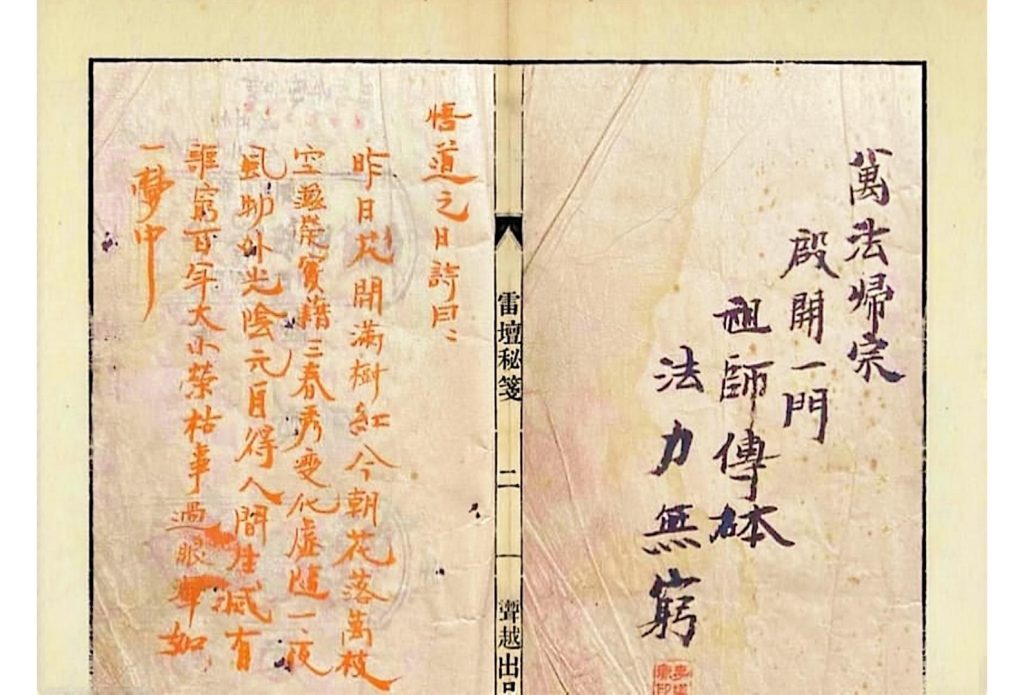 萬法歸宗
殷開一門
祖師傳砵
法力無窮
雷壇秘箋
二
越出
悟道之日詩曰：
昨日花開滿樹紅今朝花落萬枝
空滋榮實藉三春秀變化虛隨一夜
風物外光陰元自得人間生滅有
誰窮百年大小榮枯事過眼渾如
一夢中